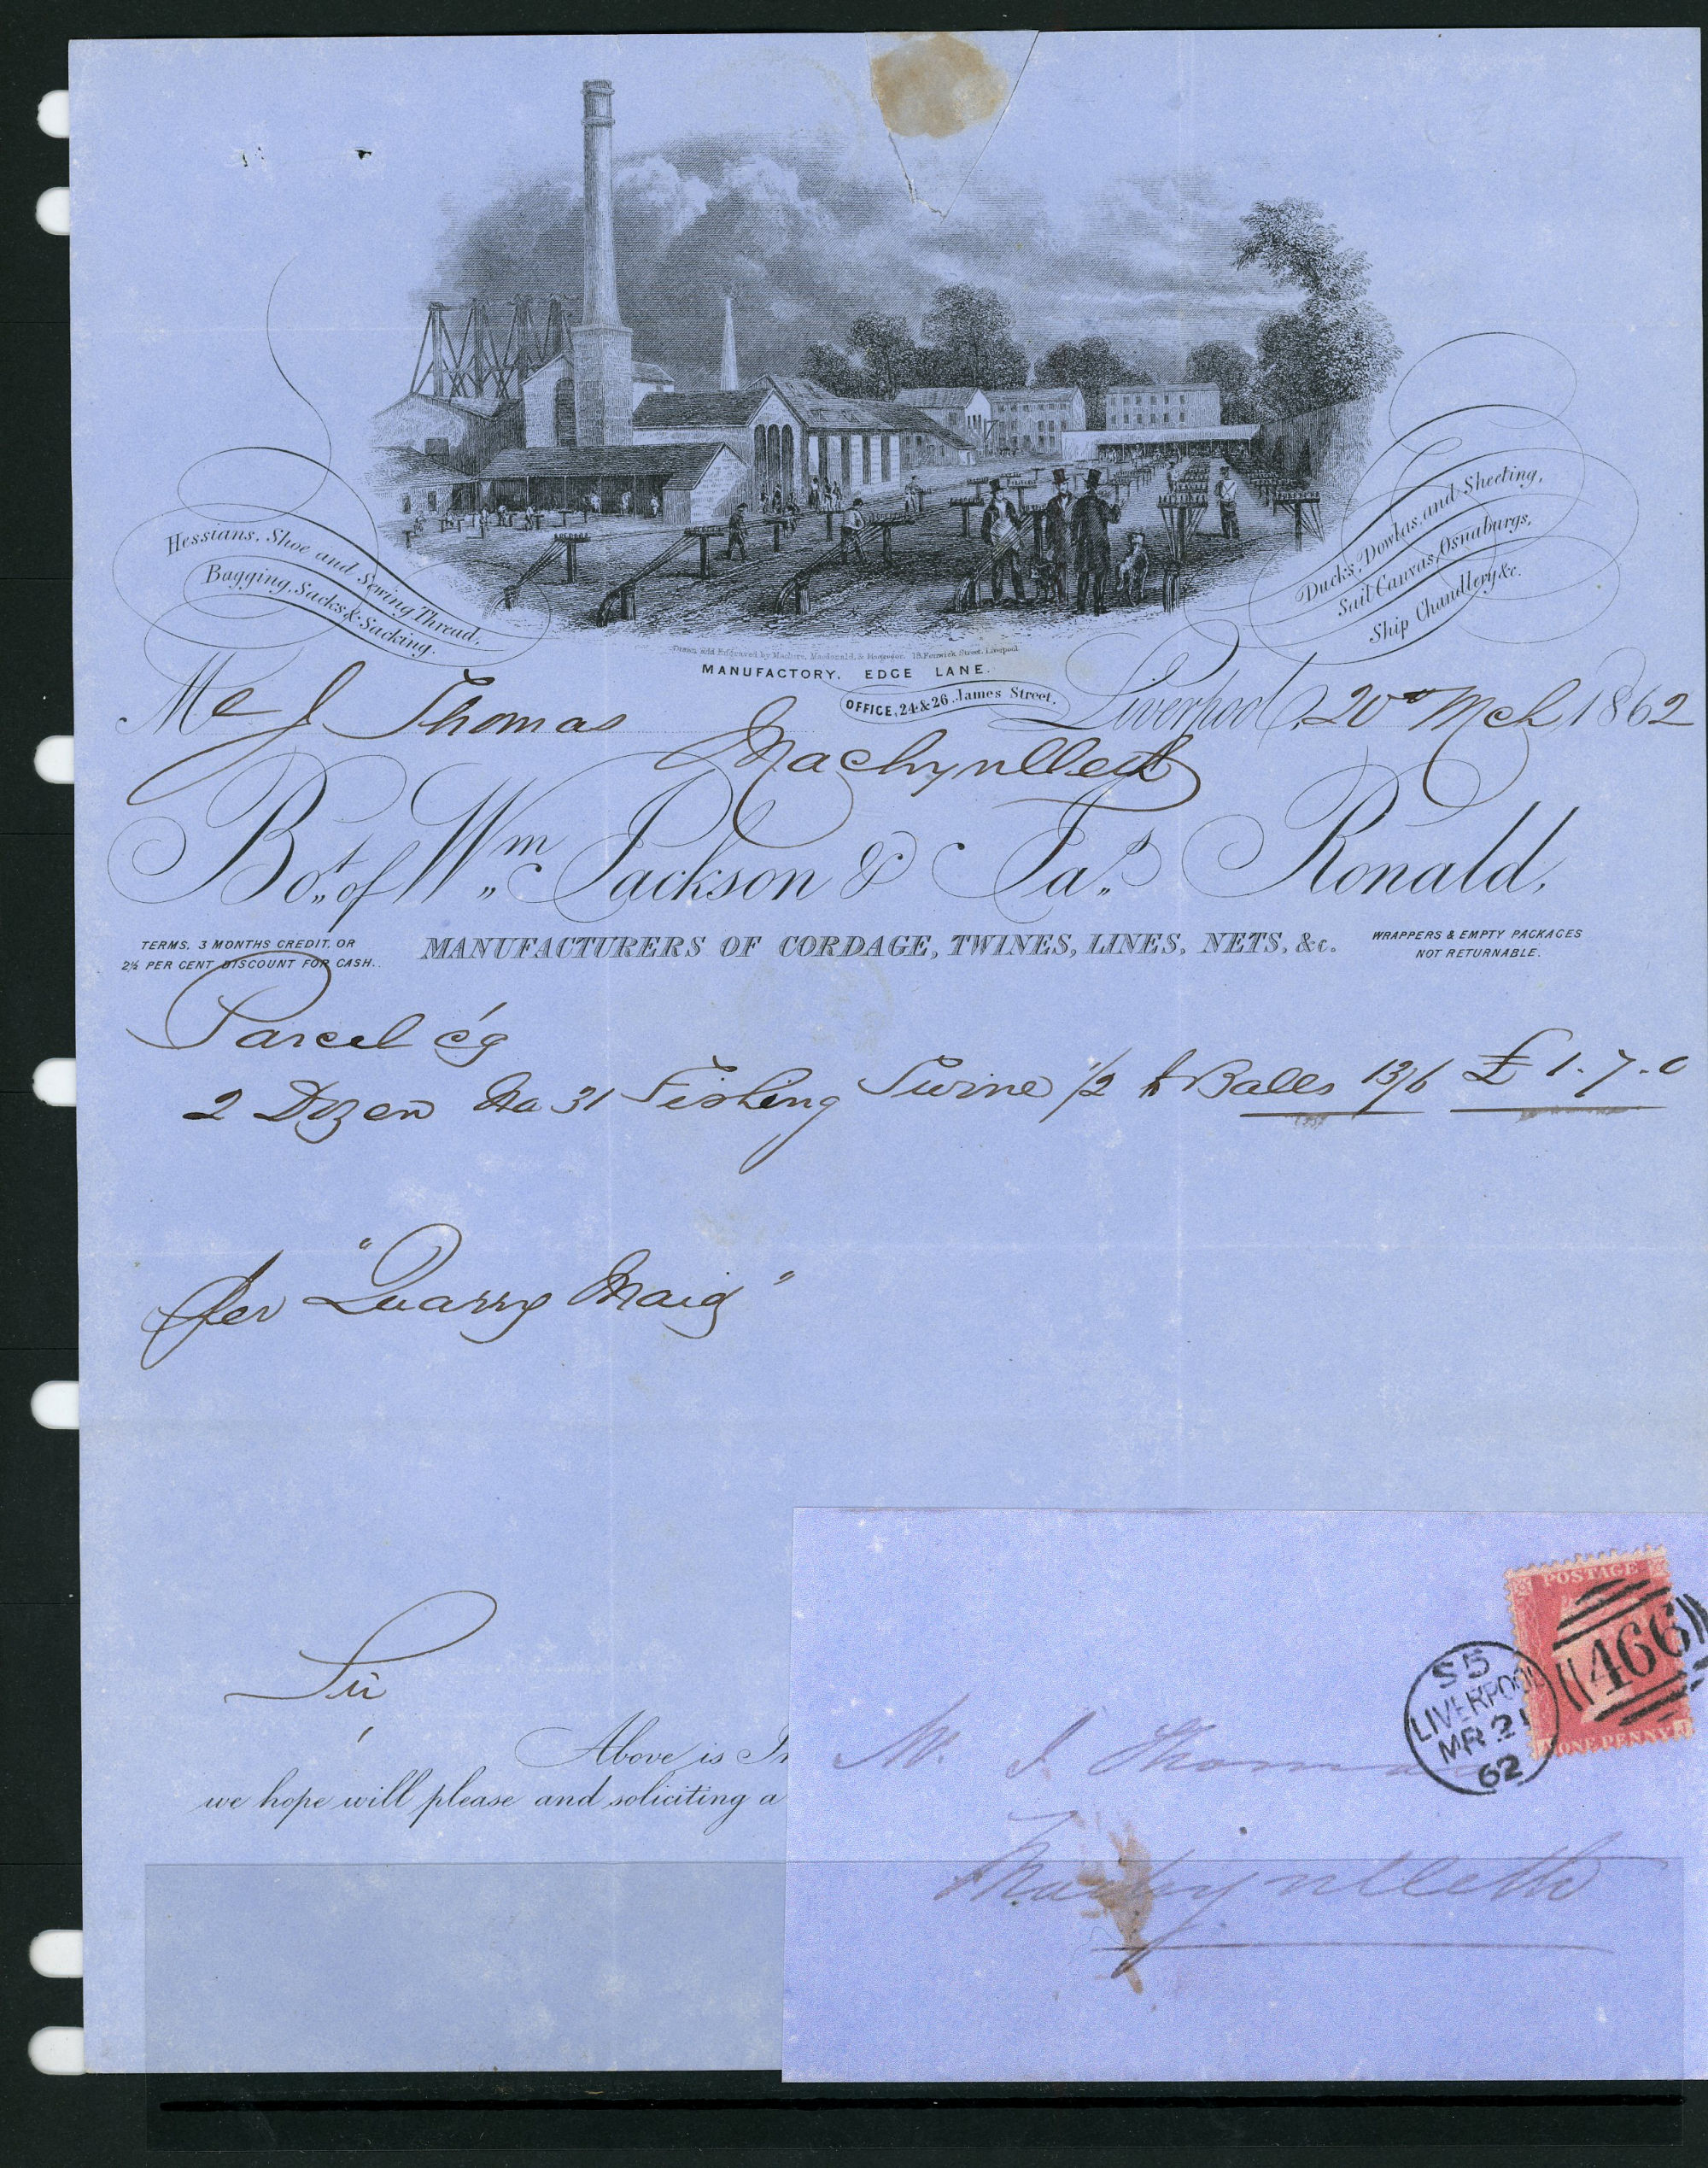 Hessians, Shoe and Sewing Thread,
Bagging, Sacks & Sacking.
Ducks, Dowlas, and Sheeting,
Sail Canvas, Osnaburgs,
Ship Chandlery &c.
Drawn and Engraved by Maclure, Macdonald, & Macgregor, 18 Fenwick Street, Liverpool
MANUFACTORY, EDGE LANE.
OFFICE, 24 & 26 James Street.
Liverpool, 20th Mch 1862
Mr J Thomas
Machynlleth
Bot. of Wm. Jackson & Jas. Ronald,
TERMS, 3 MONTHS CREDIT, OR
2½ PER CENT DISCOUNT FOR CASH.
MANUFACTURERS OF CORDAGE, TWINES, LINES, NETS, &c.
WRAPPERS & EMPTY PACKAGES
NOT RETURNABLE.
Parcel
2 Dozen No 31 Fishing Twine 1/2 Balls 13/6 £ 1-7-0
per "Quarry Maid"
Sir
Above is In
we hope will please and soliciting a
POSTAGE
466
ONE PENNY J
S5
LIVERPOOL
MR 21
62
Mr. J. Thomas
Machynlleth